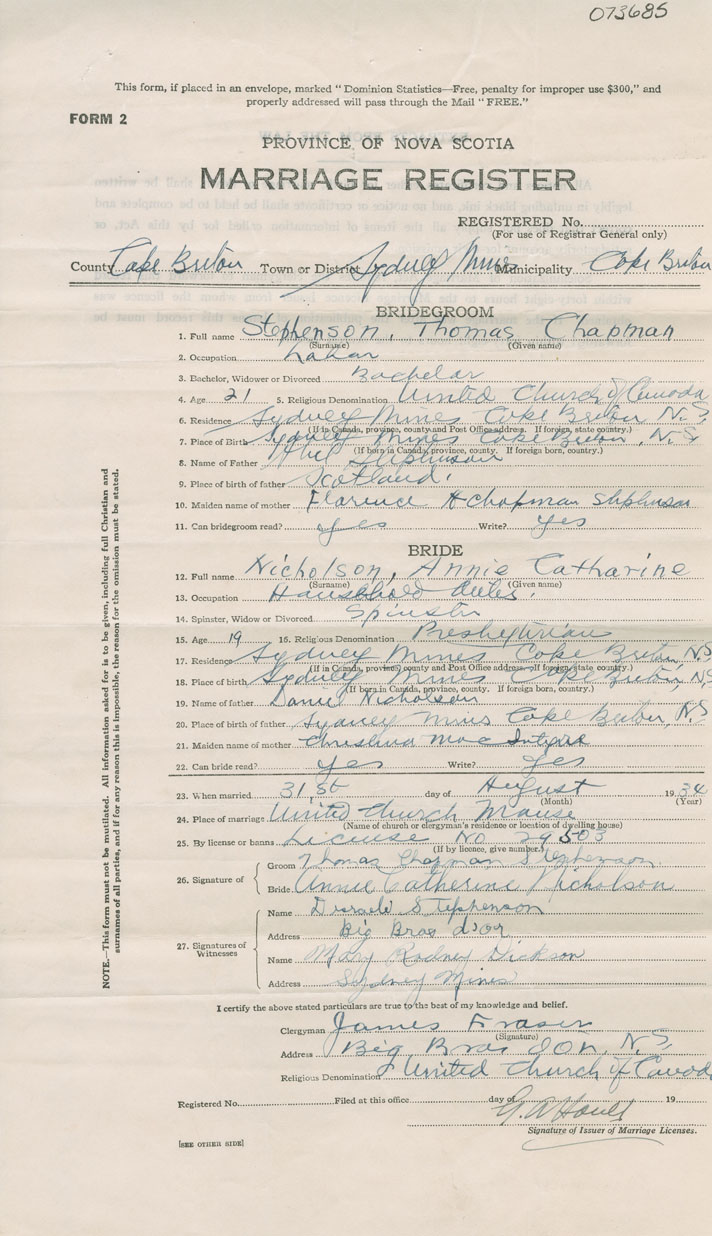 073685
This form, if placed in an envelope, marked "Dominion Statistics—Free, penalty for improper use $300," and
properly addressed will pass through the Mail "FREE."
FORM 2
PROVINCE OF NOVA SCOTIA
MARRIAGE REGISTER
REGISTERED No.
(For use of Registrar General only)
County Cape Breton Town or District Sydney Mines Municipality Cape Breton
BRIDEGROOM
1. Full name Stephenson, Thomas Chapman
(Surname) (Given name)
2. Occupation
3. Bachelor, Widower or Divorced Bachelor
4. Age 21 5. Religious Denomination United Church of Canada
6. Residence Sydney Mines Cape Breton N.S.
(If in Canada, province, county and Post Office address. If foreign, state country.)
7. Place of Birth Sydney Mines Cape Breton, N.S
(If born in Canada, province, county. If foreign born, country.)
8. Name of Father Stephenson
9. Place of birth of father Scotland.
10. Maiden name of mother Florence A Chapman Stephenson
11. Can bridegroom read? yes Write? yes
BRIDE
12. Full name Nicholson, Annie Catharine
(Surname) (Given name)
13. Occupation Household duties.
14. Spinster, Widow or Divorced Spinster
15. Age 19 16. Religious Denomination Presbyterian
17. Residence Sydney Mines Cape Breton, N.S
(If in Canada, province, county and Post Office address—If foreign, state country.)
18. Place of birth Sydney Mines Cape Breton, N.S
(If born in Canada, province, county. If foreign born, country.)
19. Name of father Daniel Nicholson
20. Place of birth of father Sydney Mines Cape Breton, N.S
21. Maiden name of mother Christina Mac Intyre
22. Can bride read? yes Write? yes
23. When married 31st day of August 1934
(Month) (Year)
24. Place of marriage United Church Manse
(Name of church or clergyman's residence or location of dwelling house)
25. By license or banns License No 24503
(If by licence, give number)
26. Signature of
Groom Thomas Chapman Stephenson
Bride Annie Catherine Nicholson
27. Signatures of Witnesses
Name Stephenson
Address Big Bras d'or
Name Mary Rodney Dickson
Address Sydney Mines
I certify the above stated particulars are true to the best of my knowledge and belief.
Clergyman James Fraser
(Signature)
Address Big Bras D'Or, N.S.
Religious Denomination United Church of Canada
Registered No. Filed at this office day of 19
G. A.
Signature of Issuer of Marriage Licenses.
[SEE OTHER SIDE]
NOTE.—This form must not be mutilated. All information asked for is to be given, including full Christian and
surnames of all parties, and if for any reason this is impossible, the reason for the omission must be stated.